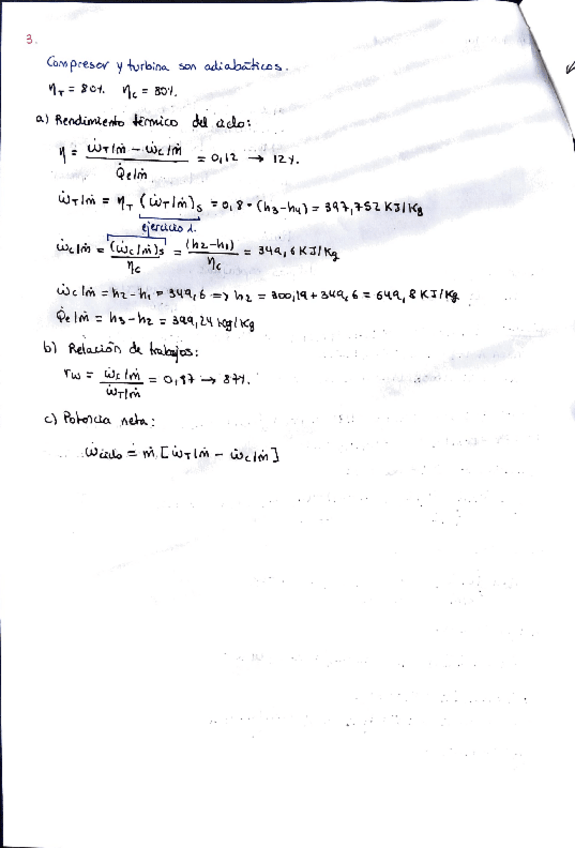 3.
Compresor y turbina son adiabáticos.
η_T = 80%. η_C = 80%.
a) Rendimiento térmico del ciclo:
η = (ẇ_T/ṁ − ẇ_C/ṁ) / (Q̇e/ṁ) = 0,12 → 12%.
ẇ_T/ṁ = η_T (ẇ_T/ṁ)_S = 0,8 · (h3-h4) = 397,752 KJ/Kg
ejercicio 1.
ẇ_C/ṁ = (ẇ_C/ṁ)_S / η_C = (h2-h1) / η_C = 349,6 KJ/Kg
ẇ_C/ṁ = h2-h1 = 349,6 => h2 = 300,19 + 349,6 = 649,8 KJ/Kg
Q̇e/ṁ = h3-h2 = 399,24 Kg/Kg
b) Relación de trabajos:
rw = (ẇ_C/ṁ) / (ẇ_T/ṁ) = 0,87 → 87%.
c) Potencia neta:
ẇciclo = ṁ [ẇ_T/ṁ − ẇ_C/ṁ]